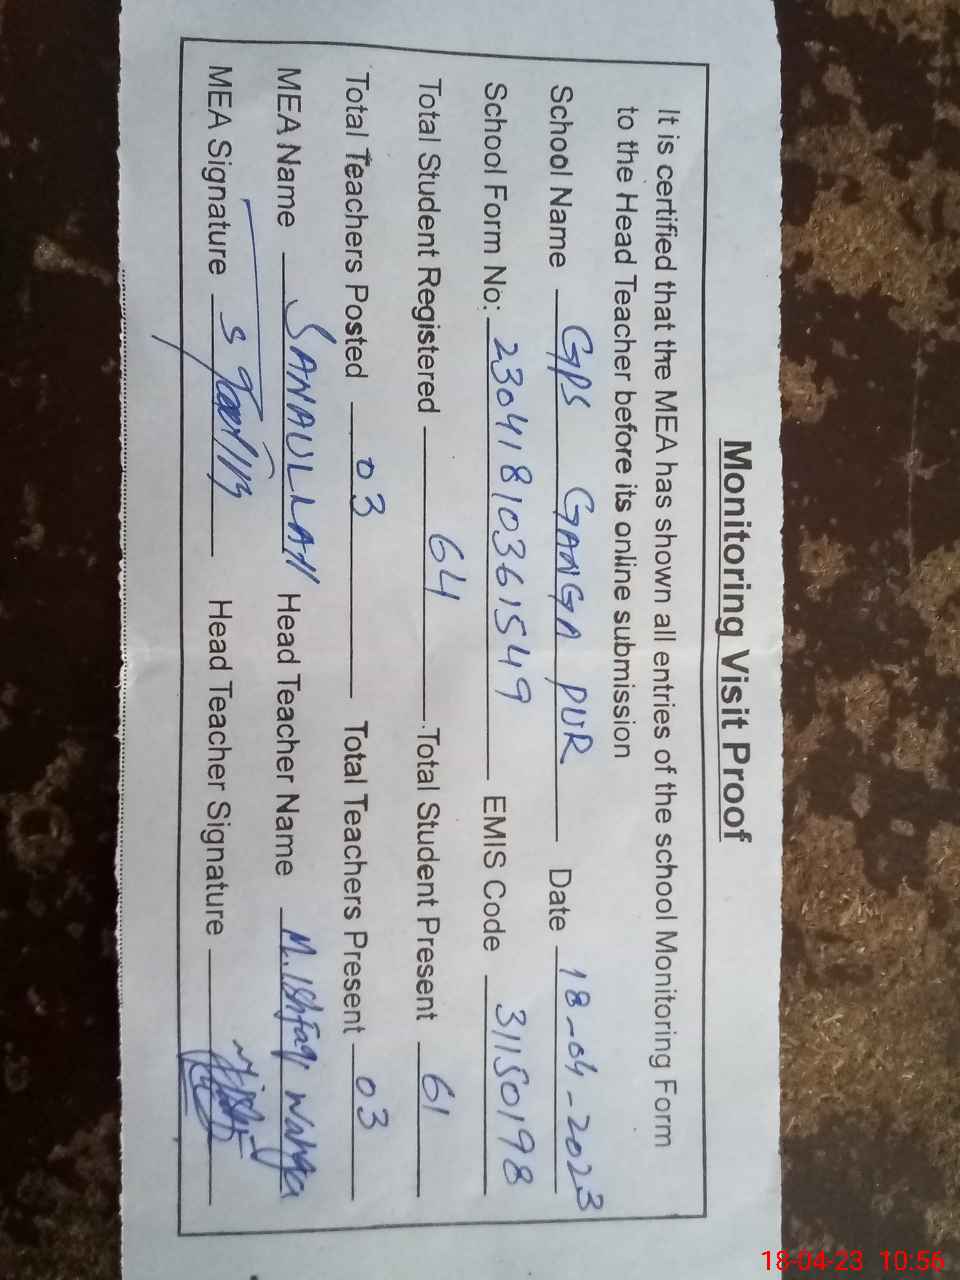 Monitoring Visit Proof
It is certified that the MEA has shown all entries of the school Monitoring Form
to the Head Teacher before its online submission
School Name GPS GANGA PUR Date 18-04-2023
School Form No: 23041810361549 EMIS Code 31150198
Total Student Registered 64 Total Student Present 61
Total Teachers Posted 03 Total Teachers Present 03
MEA Name SANAULLAH Head Teacher Name M. Ishfaq
MEA Signature Head Teacher Signature
18-04-23 10:56